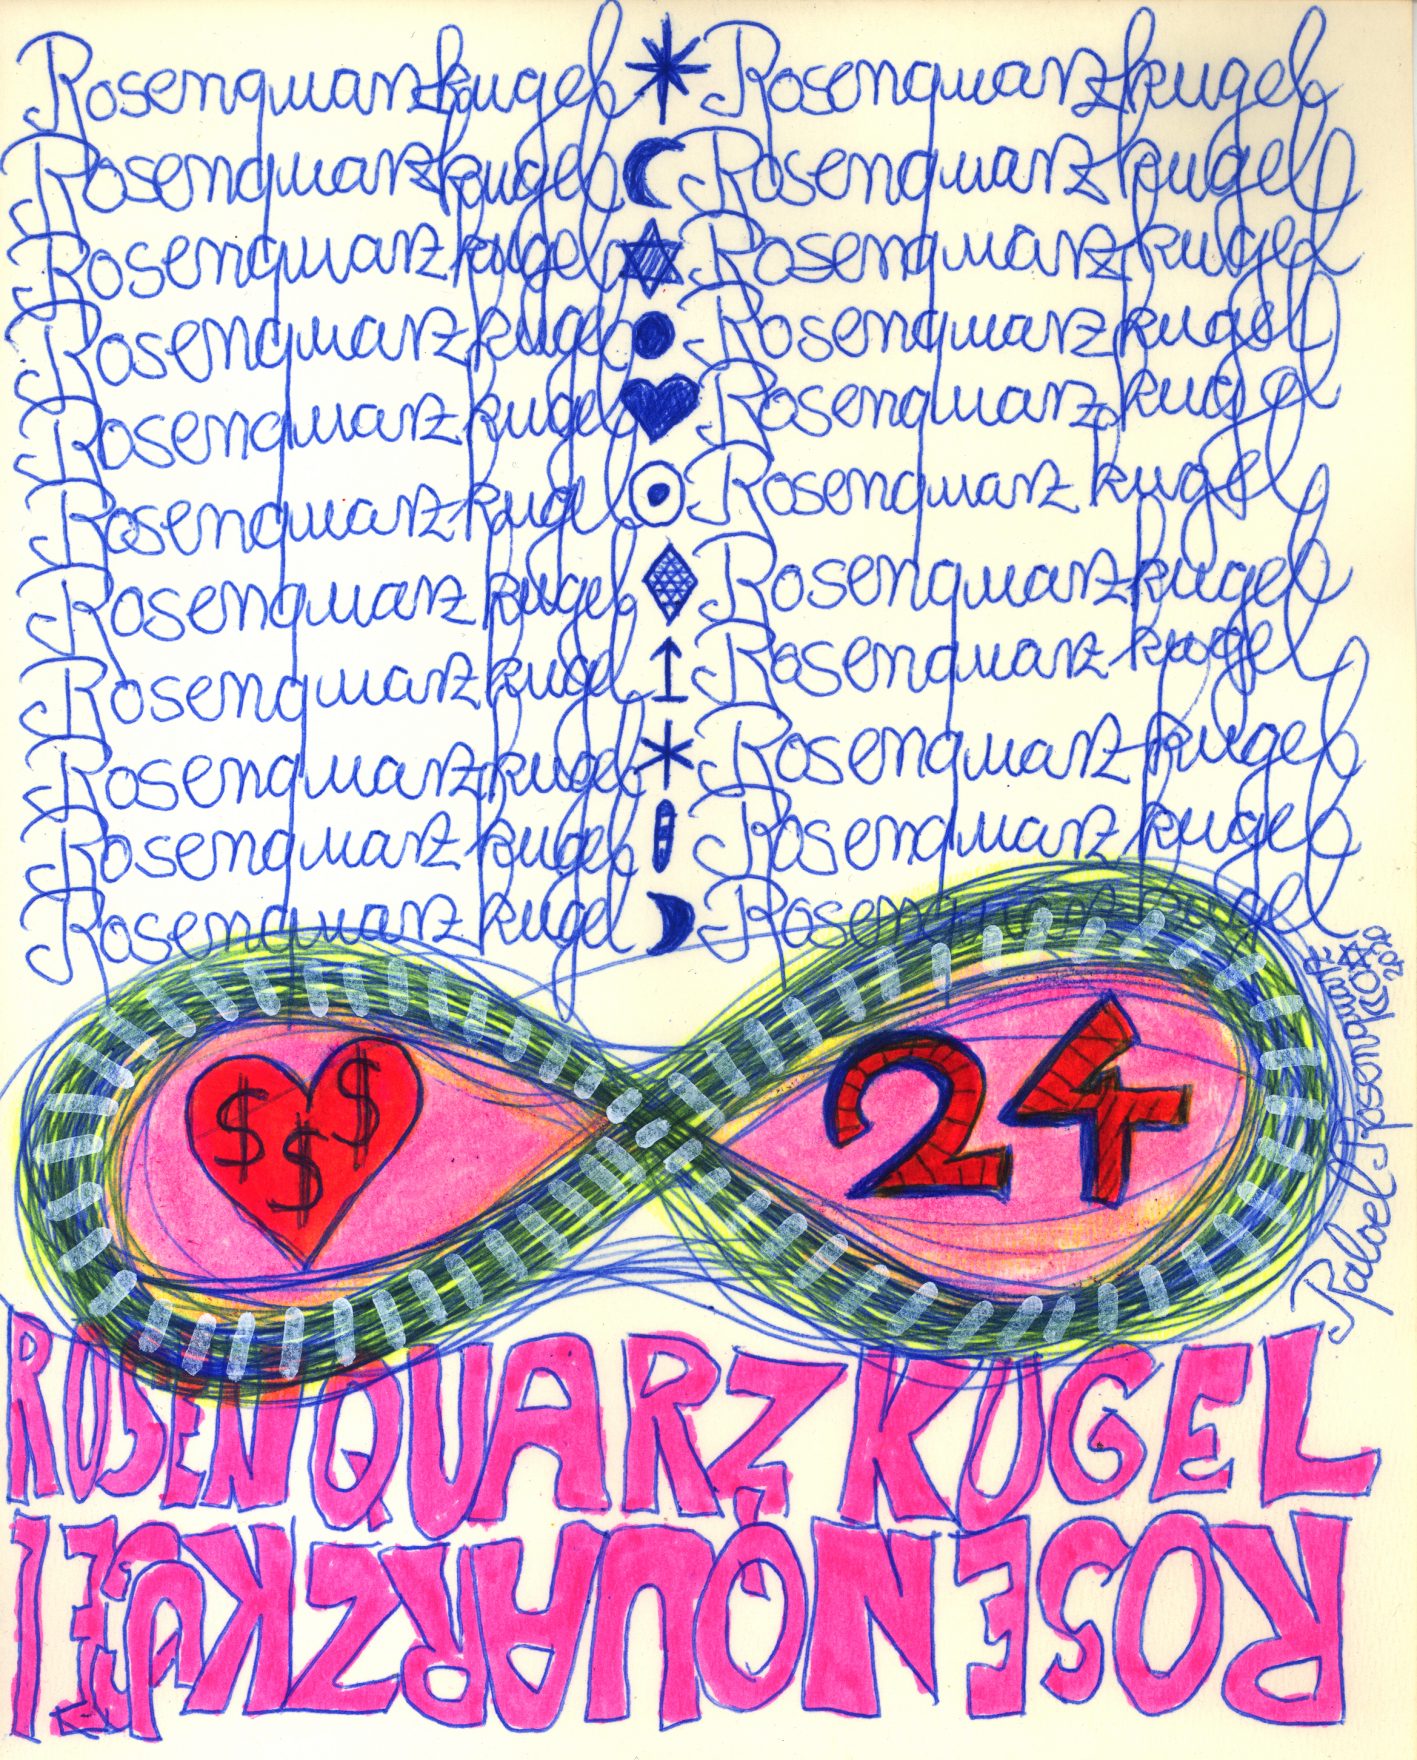 Rosenquarzkugel Rosenquarzkugel
Rosenquarzkugel Rosenquarzkugel
Rosenquarzkugel Rosenquarzkugel
Rosenquarzkugel Rosenquarzkugel
Rosenquarzkugel Rosenquarzkugel
Rosenquarzkugel Rosenquarzkugel
Rosenquarzkugel Rosenquarzkugel
Rosenquarzkugel Rosenquarzkugel
Rosenquarzkugel Rosenquarzkugel
Rosenquarzkugel Rosenquarzkugel
Rosenquarzkugel Rosenquarzkugel
$ $ $
24
ROSENQUARZKUGEL
ROSENQUARZKUGEL